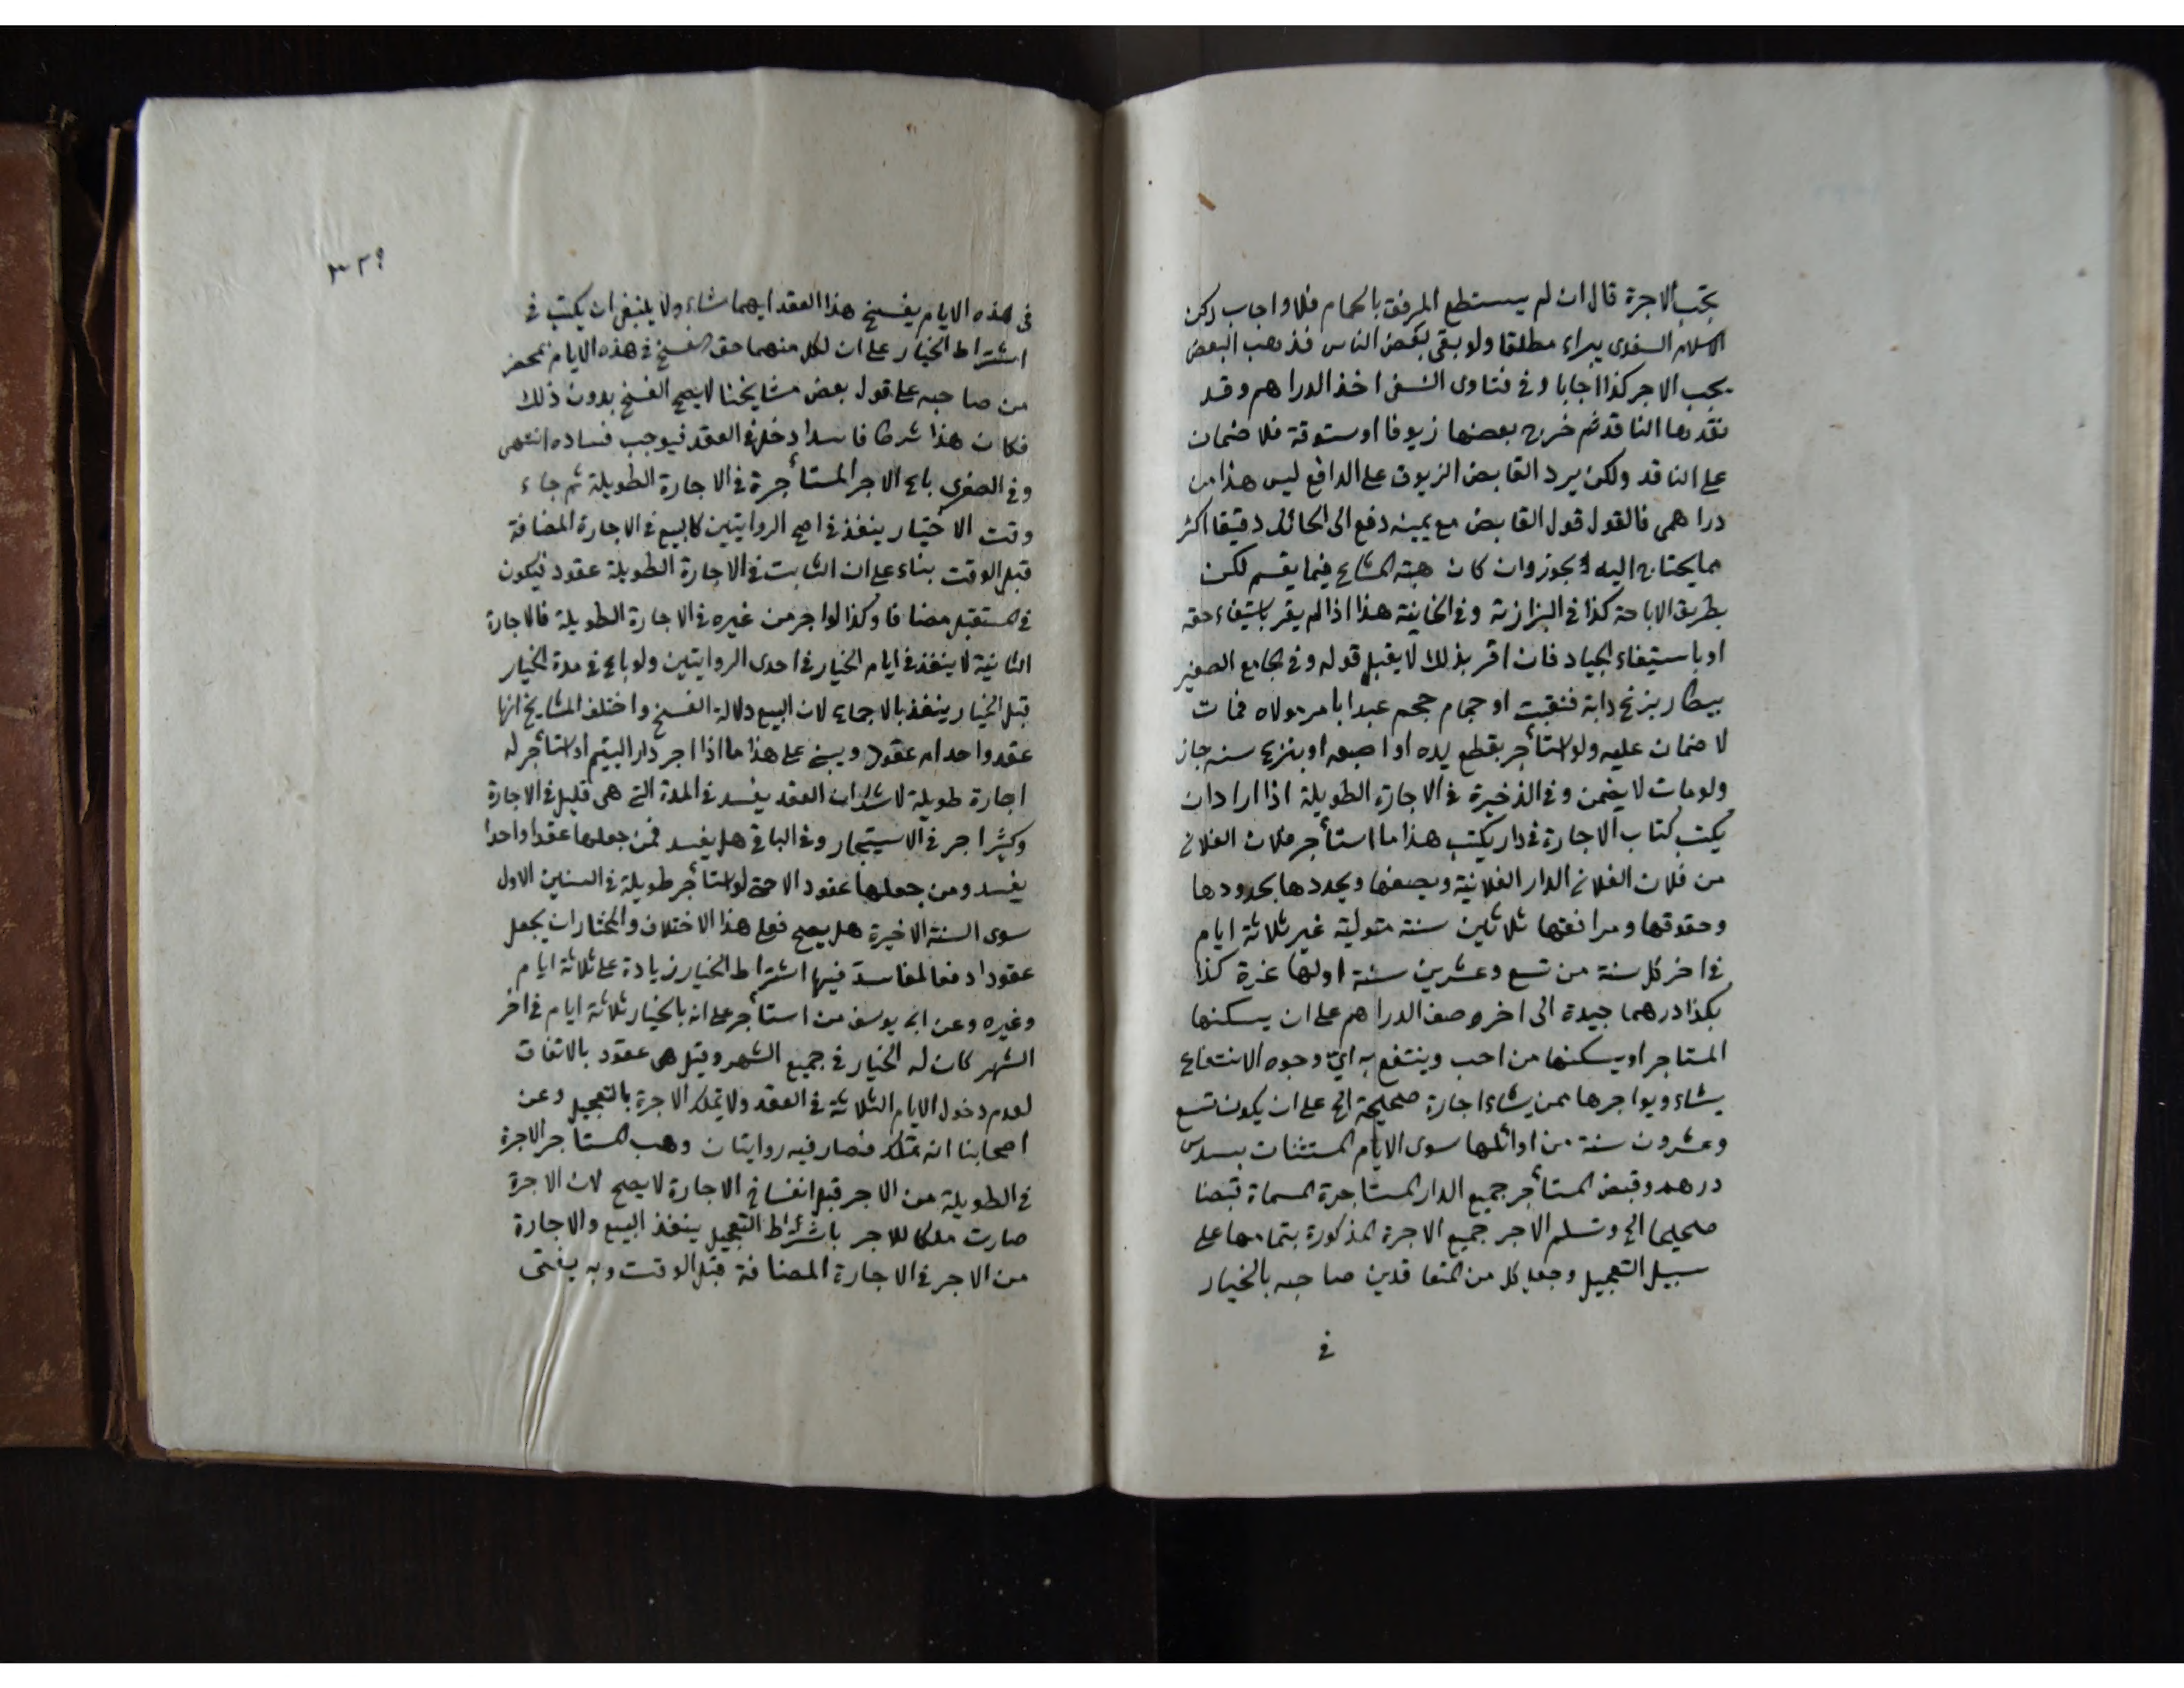 تجب الاجرة قال ان لم يستطع المرفق بالحمام فلا واجاب ركن
الاسلام السغدى يبراء مطلقا ولو بقى بعض الناس فذهب البعض
يجب الاجر كذا اجابا وفى فتاوى النسفى اخذ الدراهم وقد
نقدها الناقد ثم خرج بعضها زيوفا او ستوقة فلا ضمان
على الناقد ولكن يرد القابض الزيوف على الدافع ليس هذا من
دراهمى فالقول قول القابض مع يمينه دفع الى الحائك دقيقا اكثر
مما يحتاج اليه يجوز وان كان هبة المشاع فيما يقسم لكن
بطريق الاباحة كذا فى البزازية وفى الخانية هذا اذا لم يقر باستيفاء حقه
او باستيفاء الجياد فان اقر بذلك لا يقبل قوله وفى الجامع الصغير
بيطار بزغ دابة فنقبت او حجام حجم عبدا بامر مولاه فمات
لا ضمان عليه ولو استأجر بقطع يده او اصبعه او بنزع سنه جاز
ولو مات لا يضمن وفى الذخيرة فى الاجارة الطويلة اذا اراد ان
يكتب كتاب الاجارة فى دار يكتب هذا ما استأجر فلان الفلانى
من فلان الفلانى الدار الفلانية ويصفها ويحددها بحدودها
وحقوقها ومرافقها ثلاثين سنة متولية غير ثلاثة ايام
فى اخر كل سنة من تسع وعشرين سنة اولها غرة كذا
بكذا درهما جيدة الى اخر وصف الدراهم على ان يسكنها
المستاجر او يسكنها من احب وينتفع به اىّ وجوه الانتفاع
يشاء ويواجرها ممن يشاء اجارة صحيحة الخ على ان يكون تسع
وعشرون سنة من اوائلها سوى الايام المستثنات بسدس
درهم وقبض المستأجر جميع الدار المستاجرة المسماة قبضا
صحيحا الخ وتسلم الاجر جميع الاجرة المذكورة بتمامها على
سبيل التعجيل وجعل كل من المتعاقدين صاحبه بالخيار
فى
٣٢٩
فى هذه الايام يفسخ هذا العقد ايهما شاء ولا ينبغى ان يكتب فى
اشتراط الخيار على ان لكل منهما حق الفسخ فى هذه الايام بمحضر
من صاحبه على قول بعض مشايخنا لا يصح الفسخ بدون ذلك
فكان هذا شرطا فاسدا دخل فى العقد فيوجب فساده انتهى
وفى الصغرى باع الاجر المستأجرة فى الاجارة الطويلة ثم جاء
وقت الاختيار ينفذ فى اصح الروايتين كالبيع فى الاجارة المضافة
قبل الوقت بناء على ان الثابت فى الاجارة الطويلة عقود فيكون
فى المستقبل مضافا وكذا لو اجر من غيره فى الاجارة الطويلة فالاجارة
الثانية لا ينفذ فى ايام الخيار فى احدى الروايتين ولو باع فى مدة الخيار
قبل الخيار ينفذ بالاجماع لان البيع دلالة الفسخ واختلف المشايخ انها
عقد واحد ام عقود ويبنى على هذا ما اذا اجر دار اليتيم او استأجر له
اجارة طويلة لا شك ان العقد يفسد فى المدة التى هى قليل فى الاجارة
وكثير اجر فى الاستيجار وفى الباقى هل يفسد فمن جعلها عقدا واحدا
يفسد ومن جعلها عقود الا حتى لو استأجر طويلة فى السنين الاول
سوى السنة الاخيرة هل يصح فعلى هذا الاختلاف والمختار ان يجعل
عقودا دفعا لمفاسد فيها اشتراط الخيار زيادة على ثلاثة ايام
وغيره وعن ابى يوسف من استأجر على انه بالخيار ثلاثة ايام فى اخر
الشهر كان له الخيار فى جميع الشهر وقيل هى عقود بالاتفاق
لعدم دخول الايام الثلاثة فى العقد ولا تملك الاجرة بالتعجيل وعن
اصحابنا انه تملك فصار فيه روايتان وهب المستاجر الاجرة
فى الطويلة من الاجر قبل انفساخ الاجارة لا يصح لان الاجرة
صارت ملكا للاجر باشتراط التعجيل ينفذ البيع والاجارة
من الاجر فى الاجارة المضافة قبل الوقت وبه يفتى